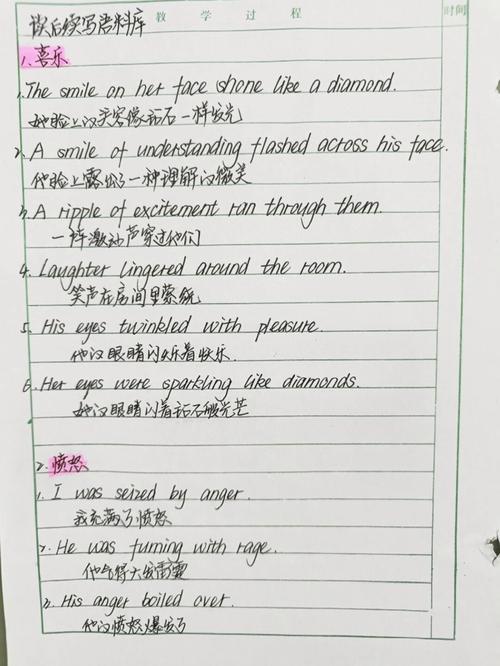 教 学 过 程
时间
读后续写语料库
1. 喜乐
1. The smile on her face shone like a diamond.
她脸上的笑容像钻石一样发光
2. A smile of understanding flashed across his face.
他脸上露出了一种理解的微笑
3. A ripple of excitement ran through them.
一阵激动声穿过他们
4. Laughter lingered around the room.
笑声在房间里萦绕
5. His eyes twinkled with pleasure.
他的眼睛闪烁着快乐.
6. Her eyes were sparkling like diamonds.
她的眼睛闪着钻石般光芒
2. 愤怒
1. I was seized by anger.
我充满了愤怒
2. He was fuming with rage.
他气得大发雷霆
3. His anger boiled over.
他的愤怒爆发了